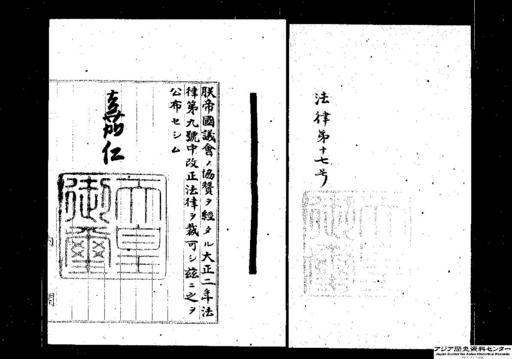 法律第十七号
朕帝國議會ノ協贊ヲ經タル大正二年法
律第九號中改正法律ヲ裁可シ茲ニ之ヲ
公布セシム
嘉仁
天皇
御璽
内
閣
アジア歴史資料センター
Japan Center for Asian Historical Records